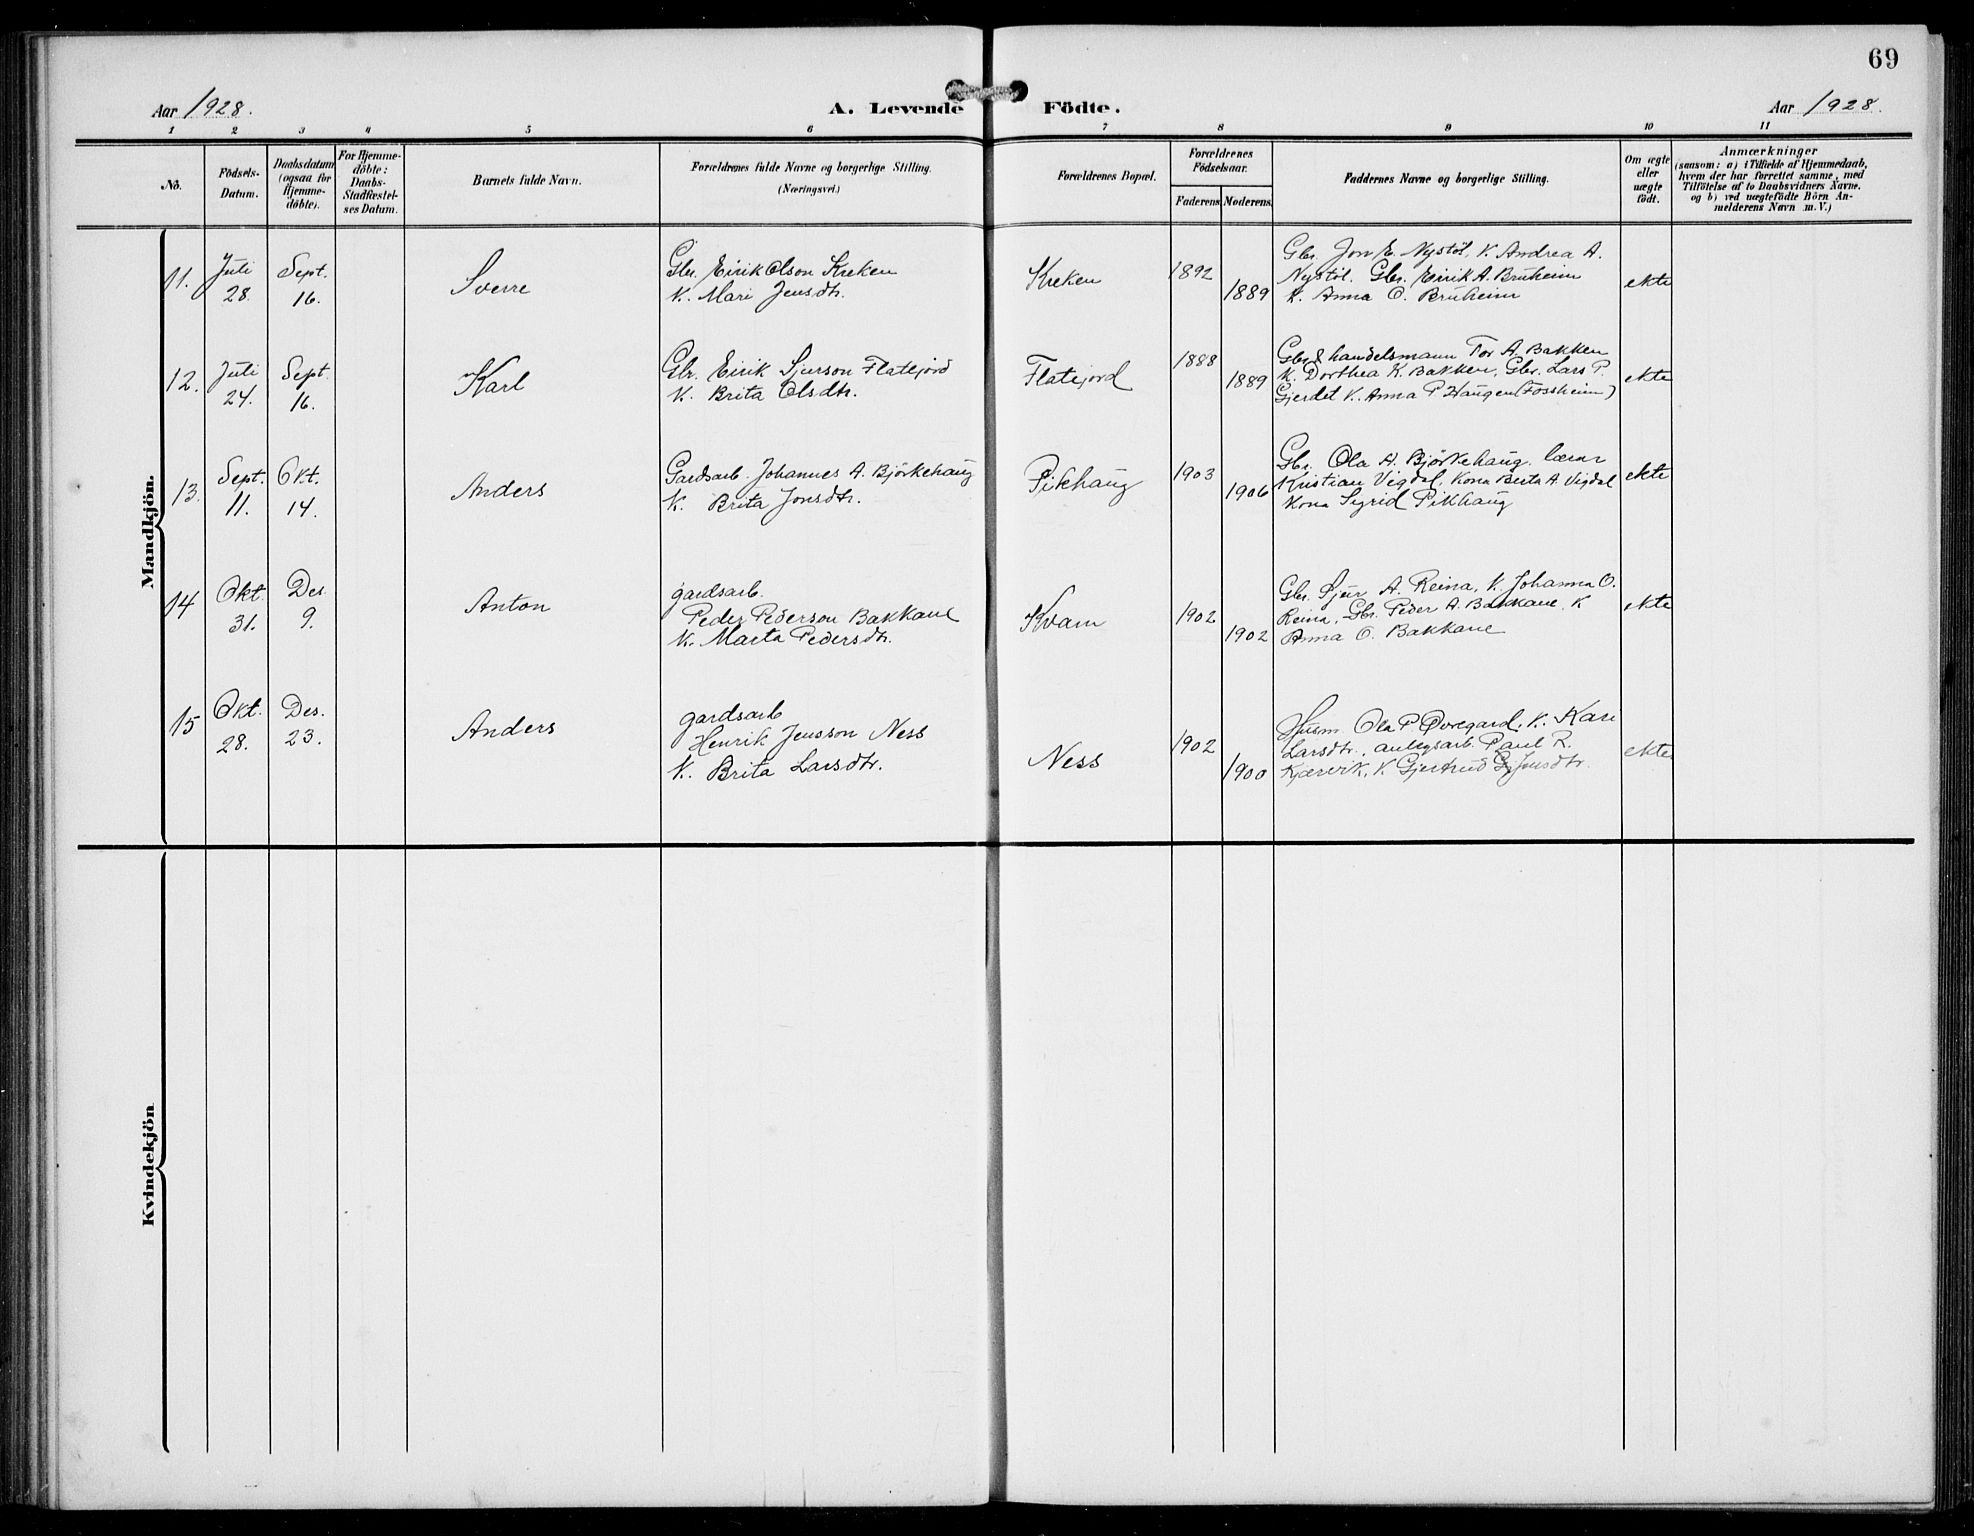 69
Aar 1928.
A. Levende Födte.
Aar 1928.
1 2 3 4 5 6 7 8 9 10 11
No.
Födsels-
Datum.
Daabsdatum
(ogsaa for
Hjemme-
döbte).
For Hjemme-
döbte:
Daabs-
Stadfæstel-
ses Datum.
Barnets fulde Navn.
Forældrenes fulde Navne og borgerlige Stilling.
(Næringsvei.)
Forældrenes Bopæl.
Forældrenes
Födselsaar.
Faderens. Moderens.
Faddernes Navne og borgerlige Stilling.
Om ægte
eller
uægte
født.
Anmærkninger
(saasom: a) i Tilfælde af Hjemmedaab,
hvem der har forrettet samme, med
Tilföielse af to Daabsvidners Navne,
og b) ved uægtefödte Börn An-
melderens Navn m. V.)
Mandkjön.
11.
Juli
28.
Sept.
16.
Sverre
Gbr. Eirik Olson Kreken
K. Mari Jensdtr.
Kreken
1892
1889
Gbr. Jon E. Nystöl, K. Andrea A.
Nystöl. Gbr. Eirik A. Bruheim
K. Anna O. Bruheim
ekte
12.
Juli
24.
Sept.
16.
Karl
Gbr. Eirik Sjurson Flatejord
K. Brita Olsdtr.
Flatejord
1888
1889
Gbr & handelsmann Tor A. Bakken
K. Dorthea K. Bakken, Gbr. Lars P.
Gjerdet K. Anna P Haugen (Fossheim)
ekte
13.
Sept.
11.
Okt.
14.
Anders
Gardsarb. Johannes A. Björkehaug
K. Brita Jonsdtr.
Pikhaug
1903
1906
Gbr. Ola A. Bjørkehaug. lærar
Kristian Vigdal, Kona Berta A Vigdal
Kona Sigrid Pikhaug
ekte
14
Okt.
31.
Des.
9.
Anton
gardsarb.
Peder Pederson Bakkane
K. Marta Pedersdtr.
Kvam
1902
1902
Gbr. Sjur A. Reina, K. Johanna O.
Reina, Gbr. Peder A. Bakkane, K
Anna O. Bakkane
ekte
15
Okt.
28.
Des.
23.
Anders
gardsarb
Henrik Jensson Ness
K. Brita Larsdtr.
Ness
1902
1900
Husm. Ola P Øvregard, K. Kari
Larsdtr., anlegsarb. Paul R.
Kjærvik, K. Gjertrud Jensdtr.
ekte
Kvindekjön